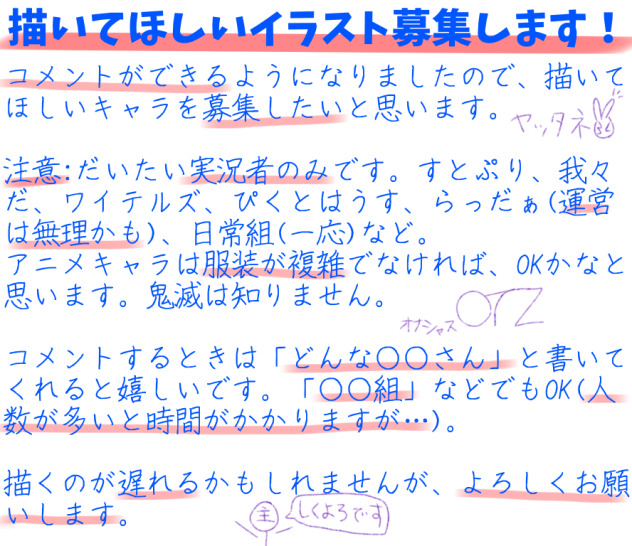 描いてほしいイラスト募集します！
コメントができるようになりましたので、描いて
ほしいキャラを募集したいと思います。
ヤッタネ
注意:だいたい実況者のみです。すとぷり、我々
だ、ワイテルズ、ぴくとはうす、らっだぁ(運営
は無理かも)、日常組(一応)など。
アニメキャラは服装が複雑でなければ、OKかなと
思います。鬼滅は知りません。
オナシャス OTZ
コメントするときは「どんな〇〇さん」と書いて
くれると嬉しいです。「〇〇組」などでもOK(人
数が多いと時間がかかりますが…)。
描くのが遅れるかもしれませんが、よろしくお願
いします。
主 しくよろです